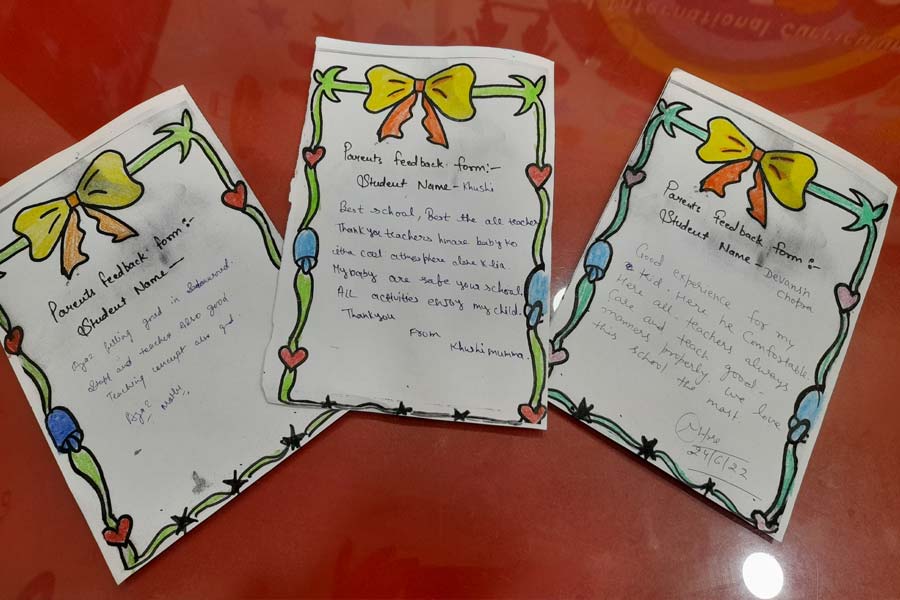 International Curriculum
Parents feedback form:-
Student Name-
felling good in
Staff and teacher Also good
Teaching concept also gud.
Parents feedback form:-
Student Name- Khushi
Best school, Best the all teacher
Thank you teachers hmare baby ko
itna cool atmosphere dene k lia.
My baby are safe your school.
ALL activities enjoy my child.
Thankyou
From
Khushi mumma.
Parents feedback form:-
Student Name- Devansh
Chopra
Good experience for my
Here he Comfortable
Here all teachers always
care and teach good
manners properly. we love
this school the most.
24/6/22